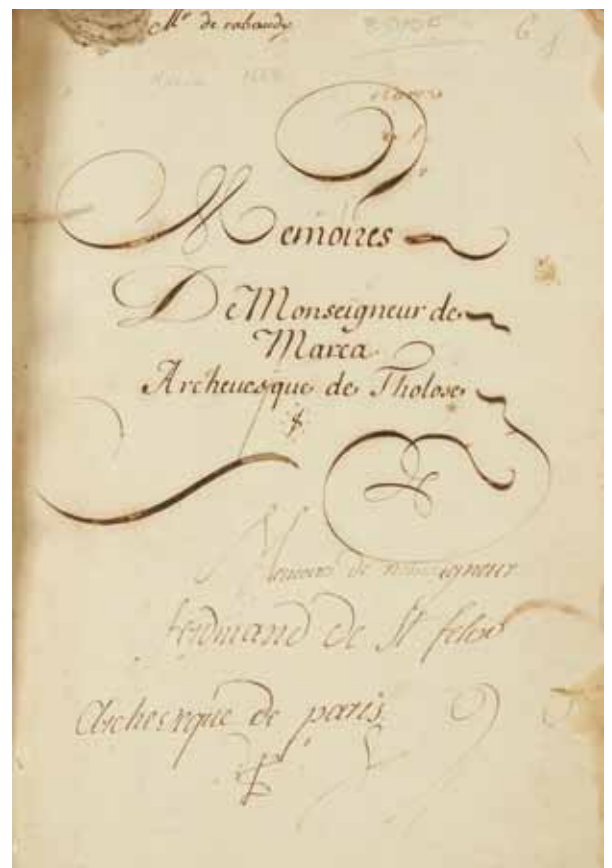 Mr de rabaudy
Memoires
De Monseigneur de
Marca
Archeuesque de Tholose
Memoires de monseigneur
ferdinand de St felix
Archeveque de paris